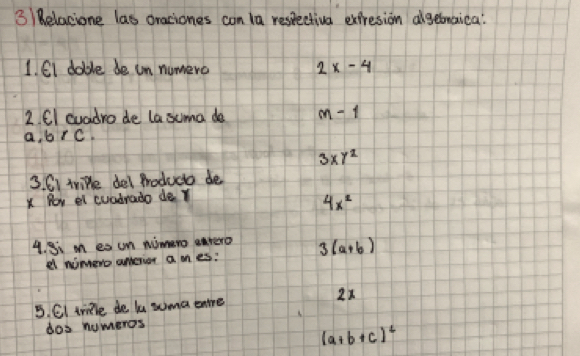 3) Relacione las oraciones con la respectiva expresión algebraica:
1. El doble de un numero
2x - 4
2. El cuadro de la suma de
a, b y c.
m - 1
3xy²
3. El triple del Producto de
x Por el cuadrado de Y
4x²
4. Si m es un número entero
el número anterior a m es:
3(a+b)
2x
5. El triple de la suma entre
dos numeros
(a+b+c)²